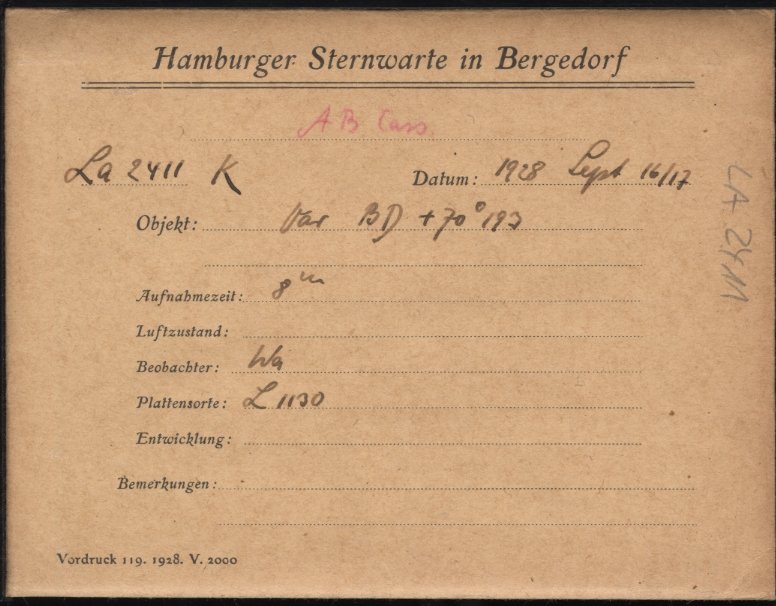 Hamburger Sternwarte in Bergedorf
AB Cass.
La 2411 K Datum: 1928 Sept 16/17
Objekt: Var BD +70° 193
Aufnahmezeit: 8m
Luftzustand:
Beobachter: Wa
Plattensorte: L 1130
Entwicklung:
Bemerkungen:
Vordruck 119. 1928. V. 2000
LA 2411